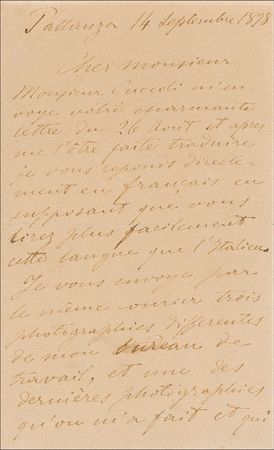 Pallanza 14 Septembre 1898
Cher Monsieur
Monsieur Cuccoli m'en
voye votre charmante
lettre du 26 Aout et après
me l'être faite traduire
je vous reponds directe
ment en français en
supposant que vous
lirez plus facilement
cette langue que l'Italien
Je vous envoye par
le même courier trois
photographies differentes
de mon bureau de
travail, et une des
dernières photographies
qu'on m'a fait et qui